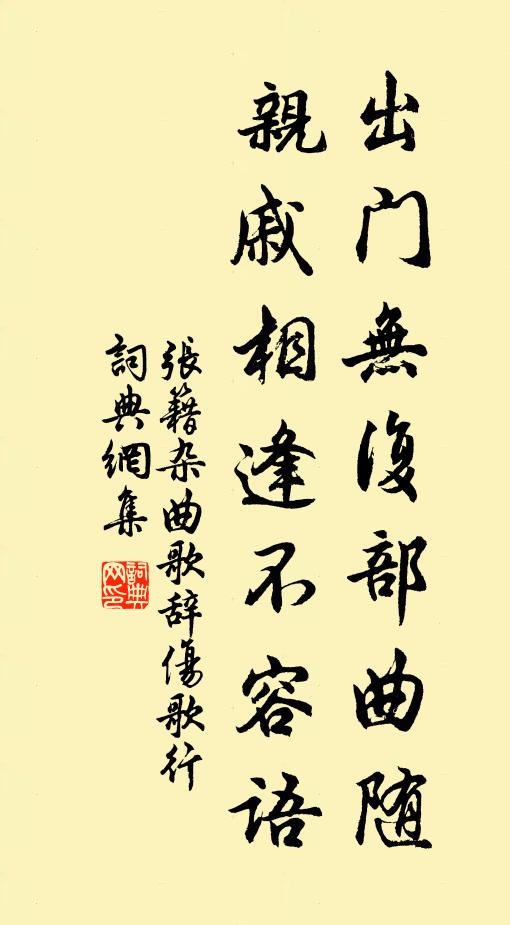 出门無復部曲随
親戚相逢不容語
張籍杂曲歌辞傷歌行
詞典網集
詞典网印